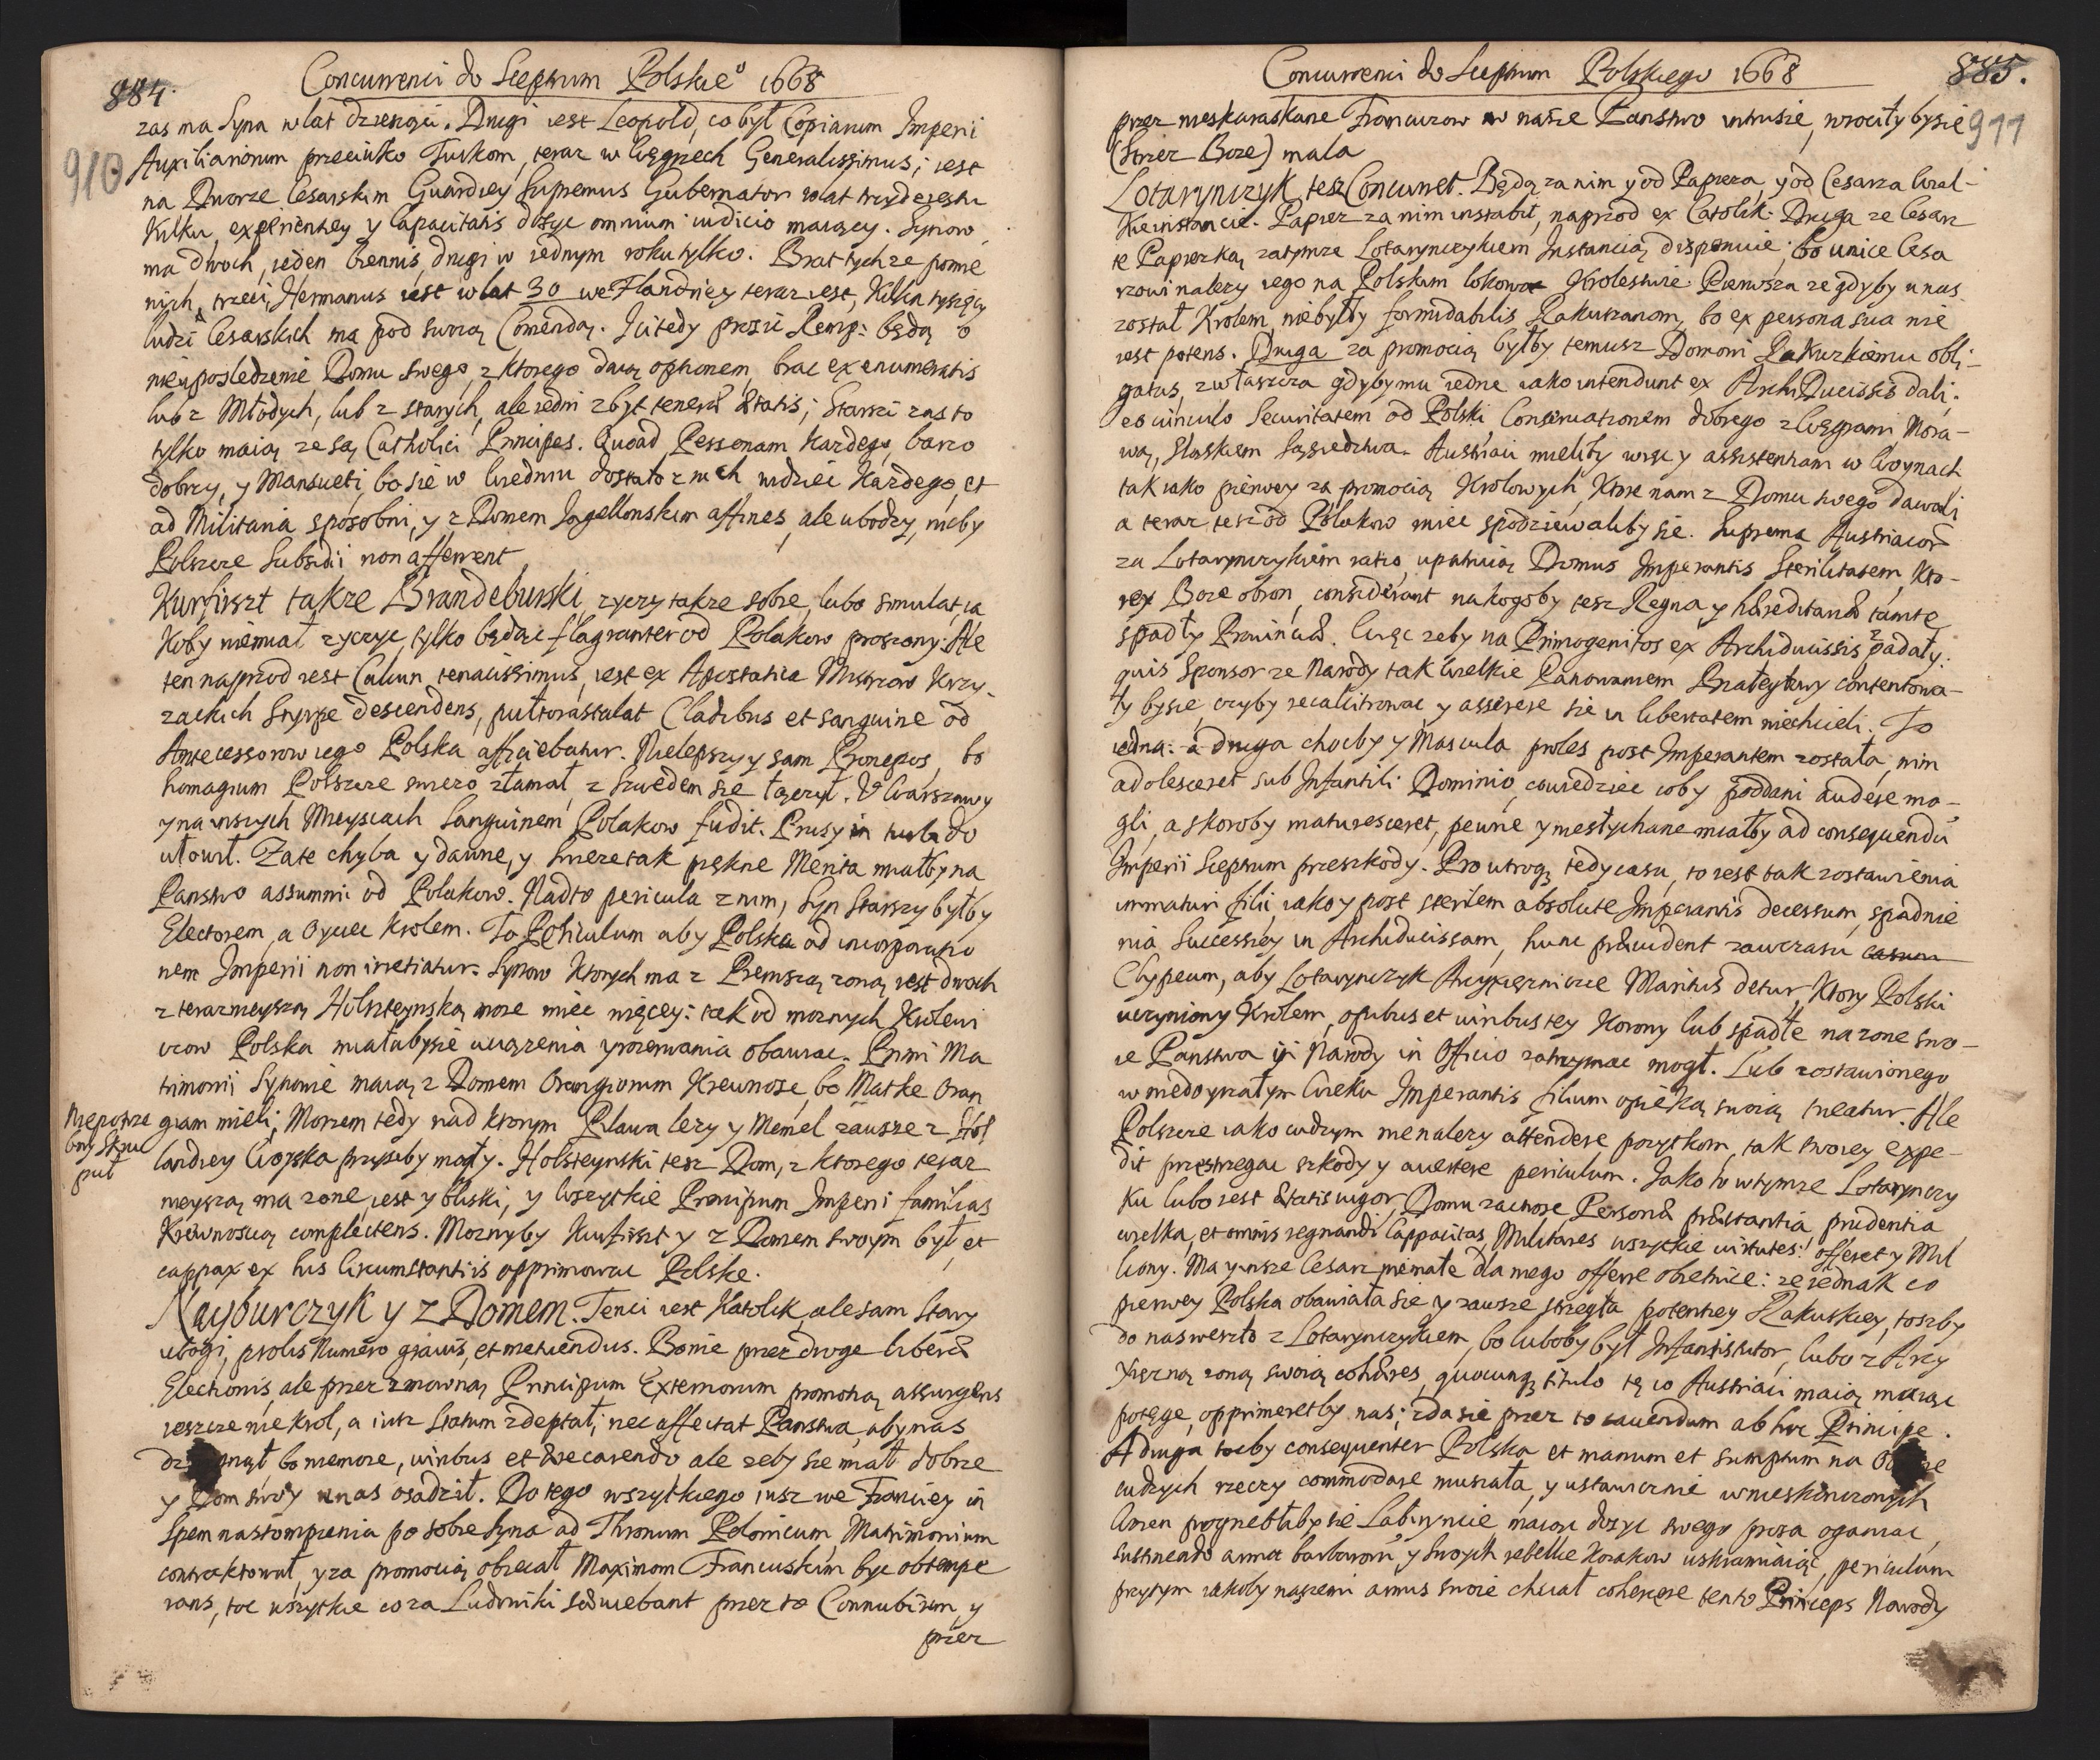 884.
Concurrenci do Sceptrum Polskieº 1668
910
zas ma Syna w lat dziesięci. Drugi iest Leopold, co był Copiarum Imperii
Auxiliariorum przeciwko Turkom, teraz w Węgrzech Generalissimus; iest
na Dworze Cesarskim Guardiey Supremus Gubernator w lat trzydziestu
kilku, experientiey y Capacitatis dosyc omnium iudicio maiący. Synow
ma dwoch, ieden Biennis, drugi w iednym roku tylko. Brat tychze pomie
nich, trzeci, Hermanus iest w lat 30 we Flandriey teraz iest, kilka tysięcy
ludzi Cesarskich ma pod swoią Comendą. Ici tedy prosic Remp: będą o
nieuposledzenie Domu swego, z ktorego daią optionem, brac ex enumeratis
lub z Młodych, lub z starych, ale iedni zbyt teneræ ætatis; Starsi zas to
tylko maią ze są Catholici Principes. Quoad Personam kazdego, barzo
dobrzy, y Mansueti, bo sie w Wiedniu dostatoznich, widziec kazdego, et
ad Militaria sposobni, y z Domem Jagellonskim affines, ale ubodzy, nicby
Polszcze Subsidii non afferrent
Kurfirszt takze Brandeburski, zyczy takze sobie, lubo simulat, ia
koby niemiał zyczyc, tylko będąc flagranter od Polakow proszony. Ale
ten naprzod iest Caluin. tenacissimus, iest ex Apostatica Mistrzow Krzy-
zackich Styrpe descendens, pułtorastalat Cladibus et sanguine od
Antecessorow iego Polska afficiebatur. Nielepszy y sam Pronepos, bo
homagium Polszcze swiezo złamał, z Szwedem sie łączył. U Warszawy
y na inszych Mieyscach Sanguinem Polakow fudit. Prusy in turbido
ułowił. Zate chyba y dawne, y swiezetak piękne Merita miałby na
Panstwo assummi od Polakow. Nadto pericula z nim, Syn Starszy byłby
Electorem, a Ociec Krolem. To Periculum aby Polska ad incorporatio
nem Imperii non irretiatur. Synow ktorych ma z Pierwszą zoną iest dwoch
z teraznieyszą Holszteynską moze miec więcey: tak od moznych Krolewi
czow Polska miałabysie uciązenia y rozerwania obawiac. Primi Ma
trimonii Synowie maią z Domem Orangiorum Krewnosc, bo Matke Oran
Niepotrze
bny Skru
puł
giam mieli, Morzem tedy nad ktorym Pilawa lezy y Memel zawsze z Hol
landiey Woyska przyseby mogły. Holsteynski tesz Dom, z ktorego teraz
nieyszą ma zone, iest y bliski, y wszytkie Principum Imperii familias
Krewnoscią complectens. Moznyby Kurfirszt y z Domem swoym był, et
cappax ex his circumstantiis opprimowac Polske.
Nayburczyk y z Domem. Tenci iest Katolik, ale sam Stary
ubogi, prolis Numero gravis, et metuendus. Bonie przez droge liberæ
Electionis, ale przez zmowną Principum Externorum promotią assurgens
ieszcze nie Krol, a iusz Statum zdeptał; nec affectat Panstwa, aby nas
bo niemoze, viribus et ale zeby sie miał dobrze
y Dom swoy unas osadził. Do tego wszytkiego iusz we Franciey in
Spem nastompienia po sobie Syna ad Thronum Polonicum, Matrimonium
contraktował, y za promocią obiecał Maximom Francuskim byc obtempe
rans, toc wszytkie coza Ludwiki seduebant przez to Connubium, y
przez
Concurrenci do Sceptrum Polskiego 1668
885.
911
przez nieskaraskane Francuzow w nasze Panstwo intrusie, wrociły bysie
(strzez Boze) mala
Lotarynczyk tesz Concurret. Będą za nim y od Papieza, y od Cesarza Wiel-
kie instancie. Papiez za nim instabit, naprzod ex Catolik: Druga ze Cesarz
te Papiezką zatymze Lotarynczykiem Instancią disponuie; bo unice Cesa
rzowi nalezy iego na Polskim lokowac Krolestwie. Pierwsza ze gdyby unas
został Krolem, niebyłby formidabilis Rakuszanom, bo ex persona sua nie
iest potens. Druga za promocią byłby temusz Domowi Rakuzkiemu obli-
gatus, zwłaszcza gdyby mu iedne iako intendunt ex ArchiDucissis dali;
eo vinculo Securitatem od Polski, Conservationem dobrego z Węgrami, Mora-
wą, Sląskiem Sąsiedztwa. Austriaci mieliby wiec y assistentiam w Woynach
tak iako pierwey za promocią Krolowych ktore nam z Domu swego dawali
a teraz tesz od Polakow miec spodziewaliby sie. Suprema Austriacor.
za Lotarynczykiem ratio, upatruią Domus Imperantis Sterilitatem, kto-
rey Boze obron, considerant nakogoby tesz Regna y hæreditariæ tamte
spadły Prouinciæ. Więc zeby na Primogenitos ex Archiducissis padały:
quis sponsor ze Narody tak wielkie Panowaniem Białeyłowy contentowa-
ły bysie, czyby recalcitrowac y asserere sie in libertatem niechcieli. To
iedna: a druga chocby y Mascula proles post Imperantem została, nim
adolesceret sub Infantili Dominio, cowiedziec coby poddani audere mo-
gli, a skoroby maturesceret, pewne y niesłychane miałby ad consequendū
Imperii Sceptrum przeszkody. Pro utroq; tedy casu, to iest tak zostawienia
immaturi filii, iako y post sterilem absolute Imperantis decessum, spadnie
nia Successiey in Archiducissam, hunc prævident zawczasu casum
Clypeum, aby Lotarynczyk Arcyxięzniczce Maritus detur, ktory Polski
uczyniony Krolem, opibus et viribus tey Korony lub spadłe na zone swo-
ie Panstwa y Narody in Officio zatrzymac mogł. Lub zostawionego
w niedoyrzałym Wieku Imperantis filium opieką swoią tueatur. Ale
Polszcze iako cudzym nienalezy attendere pozytkom, tak swoiey expe-
dit przestrzegac szkody y avertere periculum. Jako tu wtymze Lotarynczy
ku lubo iest ætatis vigor, Domu zacnosc Personæ præstantia, prudentia
wielka, et omnis regnandi Cappacitas, Militares wszytkie virtutes: offeret y Mil
liony. Ma y insze Cesarz niemałe dla niego offerre obietnice: ze iednak co
pierwey Polska obawiała sie y zawsze strzegła potentiey Rakuskiey, toszby
do nas weszło z Lotarynczykiem, bo luboby był Infantis tutor, lubo z Arcy
Xięzną zoną swoią cohæres, quocunq; titulo tę co Austriaci maią maiąc
potęge, opprimeretby nas; zda sie przez to cavendum ab hoc Principe.
A druga toby consequenter Polska et manum et sumptum na
cudzych rzeczy commodare musiała, y ustawicznie w nieskonczonych
Woien pogrzebłaby sie Labiryncie, maiąc dosyc swego proza oganiac
sustinendo arma barbarorū, y swoych rebellie Kozakow uskramiaiąc, periculum
przytym iakoby naszemi armis swoie chciał coherere tento Princeps Narody